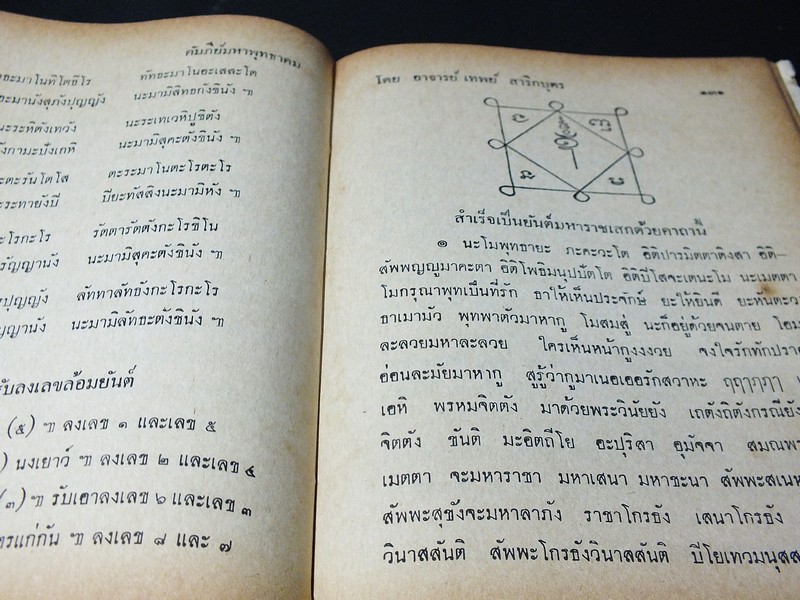 คัมภีย์มหาพุทธาคม
ธะมาโนทิโตธิโร ทัทธะมาโนอะเสละโต
ะมานังสุภังปุญญัง นะมามิสิทธกังชินัง ฯ
นะระหิตังเทวัง นะระเทเวหิปูชิตัง
ังกามะปังเกหิ นะมามิสุคะตังชินัง ฯ
ะตะรันโตโส ตะระมาโนตะโรตะโร
ะระทายังปี ปียะทัสสิงนะมามิหัง ฯ
ะโรกะโร รัตตารัตตังกะโรชิโน
รัญญานัง นะมามิสุคะตังชินัง ฯ
ปุญญัง ลัททาลัทธังกะโรกะโร
ญญานัง นะมามิลัทธะตังชินัง ฯ
รับลงเลขล้อมยันต์
(๕) ฯ ลงเลข ๑ และเลข ๕
) นงเยาว์ ฯ ลงเลข ๒ และเลข ๔
(๓) ฯ รับเอาลงเลข ๖ และเลข ๓
ตรแก่กัน ฯ ลงเลข ๘ และ ๗
โดย อาจารย์ เทพย์ สาริกบุตร ๑๓๑
สำเร็จเป็นยันต์มหาราชเสกด้วยคาถานี้
๑ นะโมพุทธายะ ภะคะวะโต อิติปารมิตตาติงสา อิติ–
สัพพญญูมาคะตา อิติโพธิมนุปปัตโต อิติปิโสจะเตนะโม นะเมตตา
โมกรุณาพุทเป็นที่รัก ธาให้เห็นประจักษ์ ยะให้ยินดี ยะหันตะวา
ธาเมามัว พุทพาตัวมาหากู โมสมสู่ นะก็อยู่ด้วยจนตาย โอม
ละลวยมหาละลวย ใครเห็นหน้ากูงงงวย จงใจรักทักปรา
อ่อนละมัยมาหากู สูรู้ว่ากูมาเนอเออรักสวาหะ ฤฤๅฦฦๅ
เอหิ พรหมจิตตัง มาด้วยพระวินัยยัง เถตังถิตังกรณียัง
จิตตัง ขันติ มะอิตถีโย อะปุริสา อุมัจจา สมณพร
เมตตา จะมหาราชา มหาเสนา มหาชะนา สัพพะสเนห
สัพพะสุขังจะมหาลาภัง ราชาโกรธัง เสนาโกรธัง
วินาสสันติ สัพพะโกรธังวินาสสันติ ปีโยเทวมนุสส